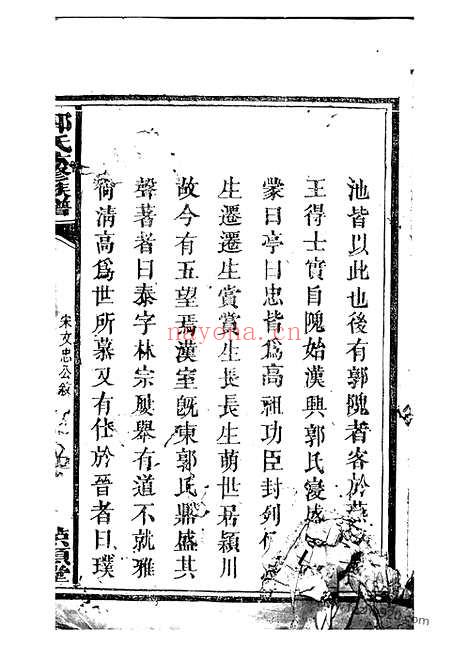 池皆以此也後有郭隗者客於燕
王得士實自隗始漢興郭氏變盛
蒙曰亭曰忠皆爲高祖功臣封列
生遷遷生賞賞生長長生萌世居潁川
故今有五望焉漢室旣東郭氏鼎盛其
聲著者曰泰字林宗駿舉有道不就雅
尙清高爲世所慕又有仕於晉者曰璞
郭氏族譜
宋文忠公敘
堂
nayona.cn
nayona.cn